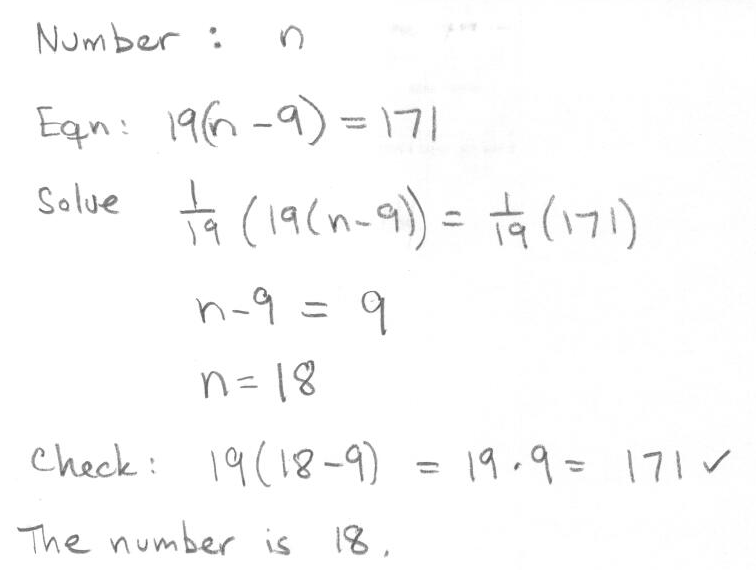 Number : n
Eqn: 19(n-9) = 171
Solve 1/19 (19(n-9)) = 1/19 (171)
n-9 = 9
n = 18
Check: 19(18-9) = 19·9 = 171 ✓
The number is 18.